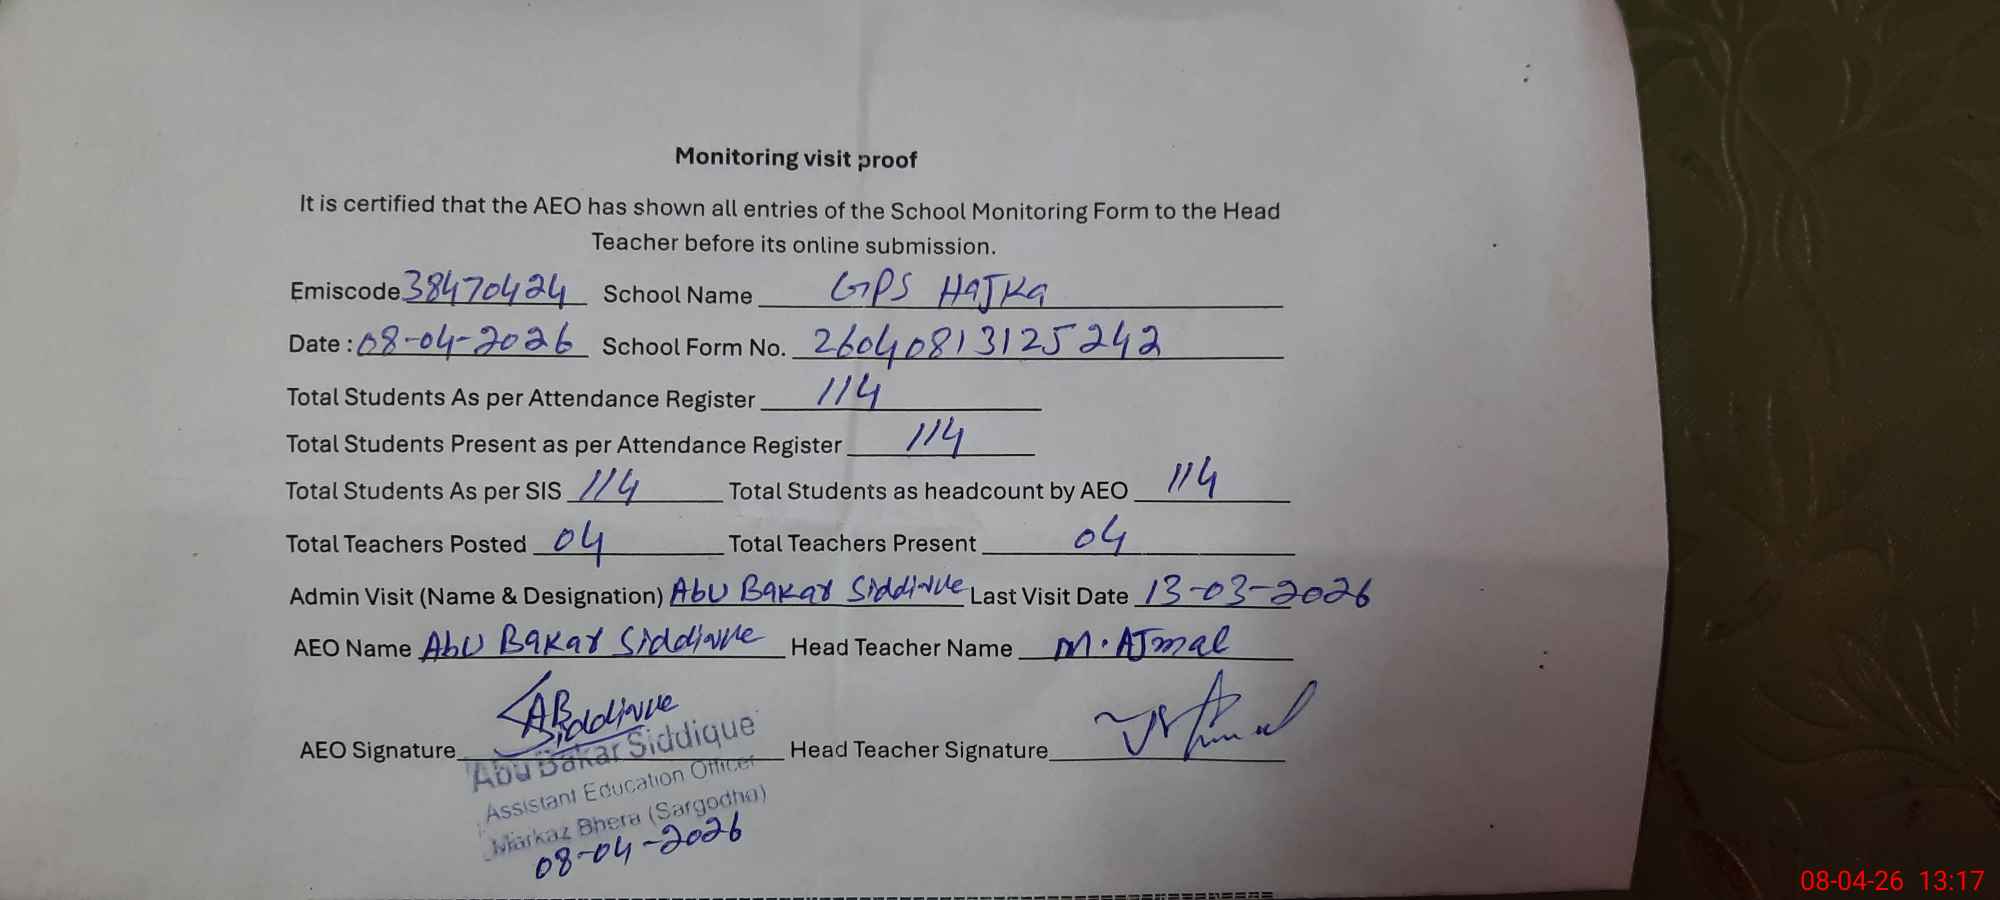 Monitoring visit proof
It is certified that the AEO has shown all entries of the School Monitoring Form to the Head
Teacher before its online submission.
Emiscode 38470424 School Name GPS HaJKa
Date : 08-04-2026 School Form No. 26040813125242
Total Students As per Attendance Register 114
Total Students Present as per Attendance Register 114
Total Students As per SIS 114 Total Students as headcount by AEO 114
Total Teachers Posted 04 Total Teachers Present 04
Admin Visit (Name & Designation) Abu Bakar Siddique Last Visit Date 13-03-2026
AEO Name Abu Bakar Siddique Head Teacher Name M. AJmal
AEO Signature ABSiddique Head Teacher Signature
Abu Bakar Siddique
Assistant Education Officer
Markaz Bhera (Sargodha)
08-04-2026
08-04-26 13:17